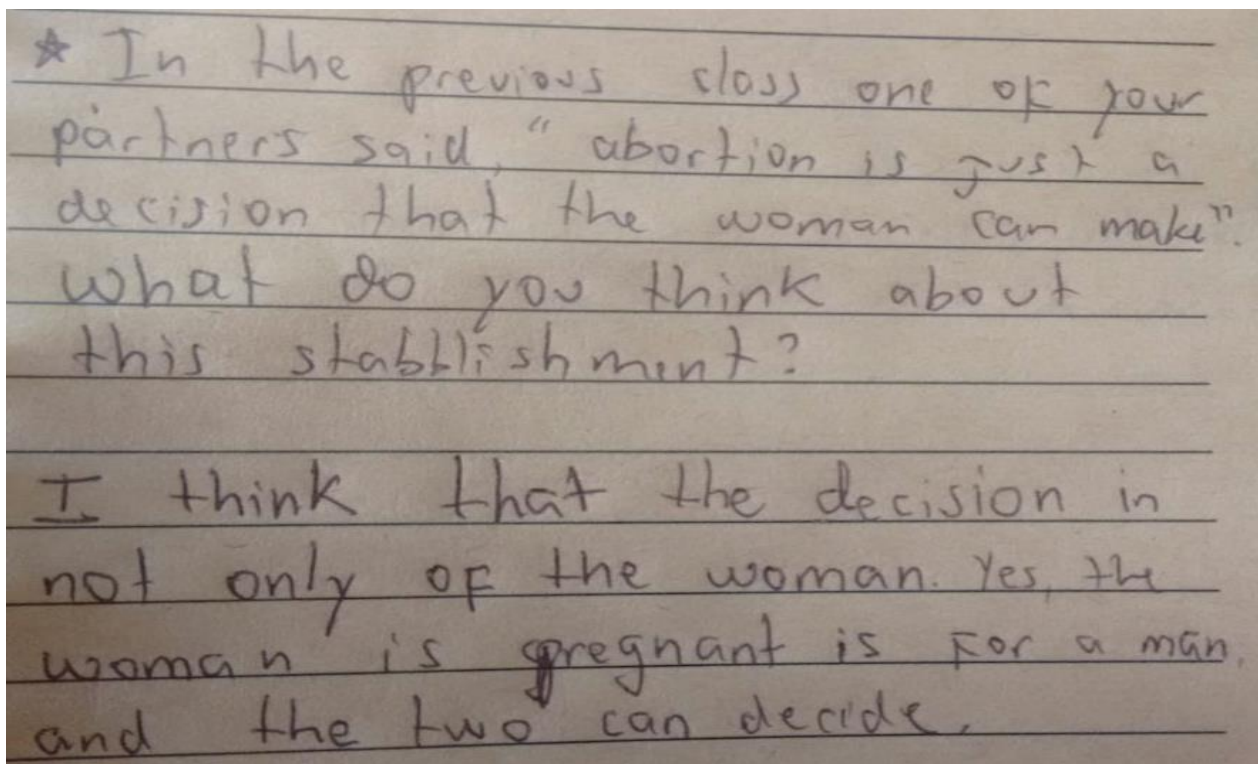 * In the previous class one of your
partners said, " abortion is just a
decision that the woman can make".
What do you think about
this stabblishment?
I think that the decision in
not only of the woman. Yes, the
woman is pregnant is for a man,
and the two can decide.